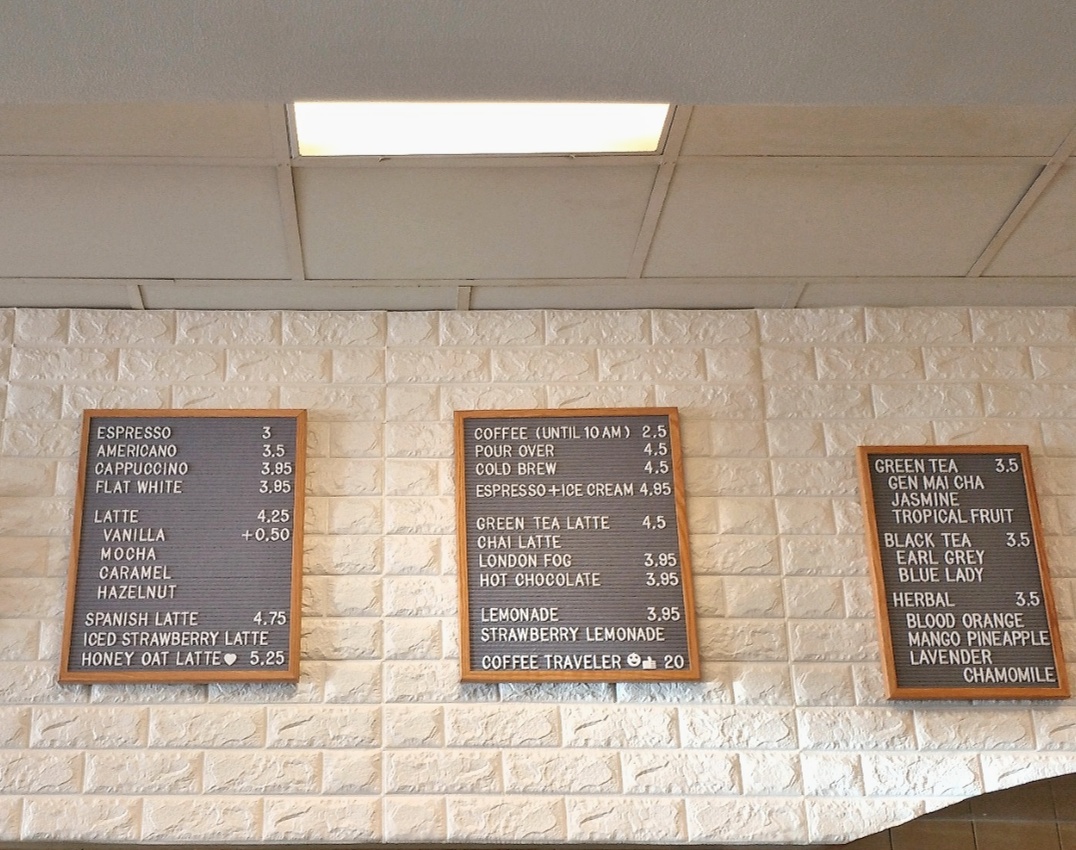 ESPRESSO 3
AMERICANO 3.5
CAPPUCCINO 3.95
FLAT WHITE 3.95
LATTE 4.25
VANILLA +0.50
MOCHA
CARAMEL
HAZELNUT
SPANISH LATTE 4.75
ICED STRAWBERRY LATTE
HONEY OAT LATTE♥ 5.25
COFFEE (UNTIL 10 AM) 2.5
POUR OVER 4.5
COLD BREW 4.5
ESPRESSO+ICE CREAM 4.95
GREEN TEA LATTE 4.5
CHAI LATTE
LONDON FOG 3.95
HOT CHOCOLATE 3.95
LEMONADE 3.95
STRAWBERRY LEMONADE
COFFEE TRAVELER 😊👍 20
GREEN TEA 3.5
GEN MAI CHA
JASMINE
TROPICAL FRUIT
BLACK TEA 3.5
EARL GREY
BLUE LADY
HERBAL 3.5
BLOOD ORANGE
MANGO PINEAPPLE
LAVENDER
CHAMOMILE